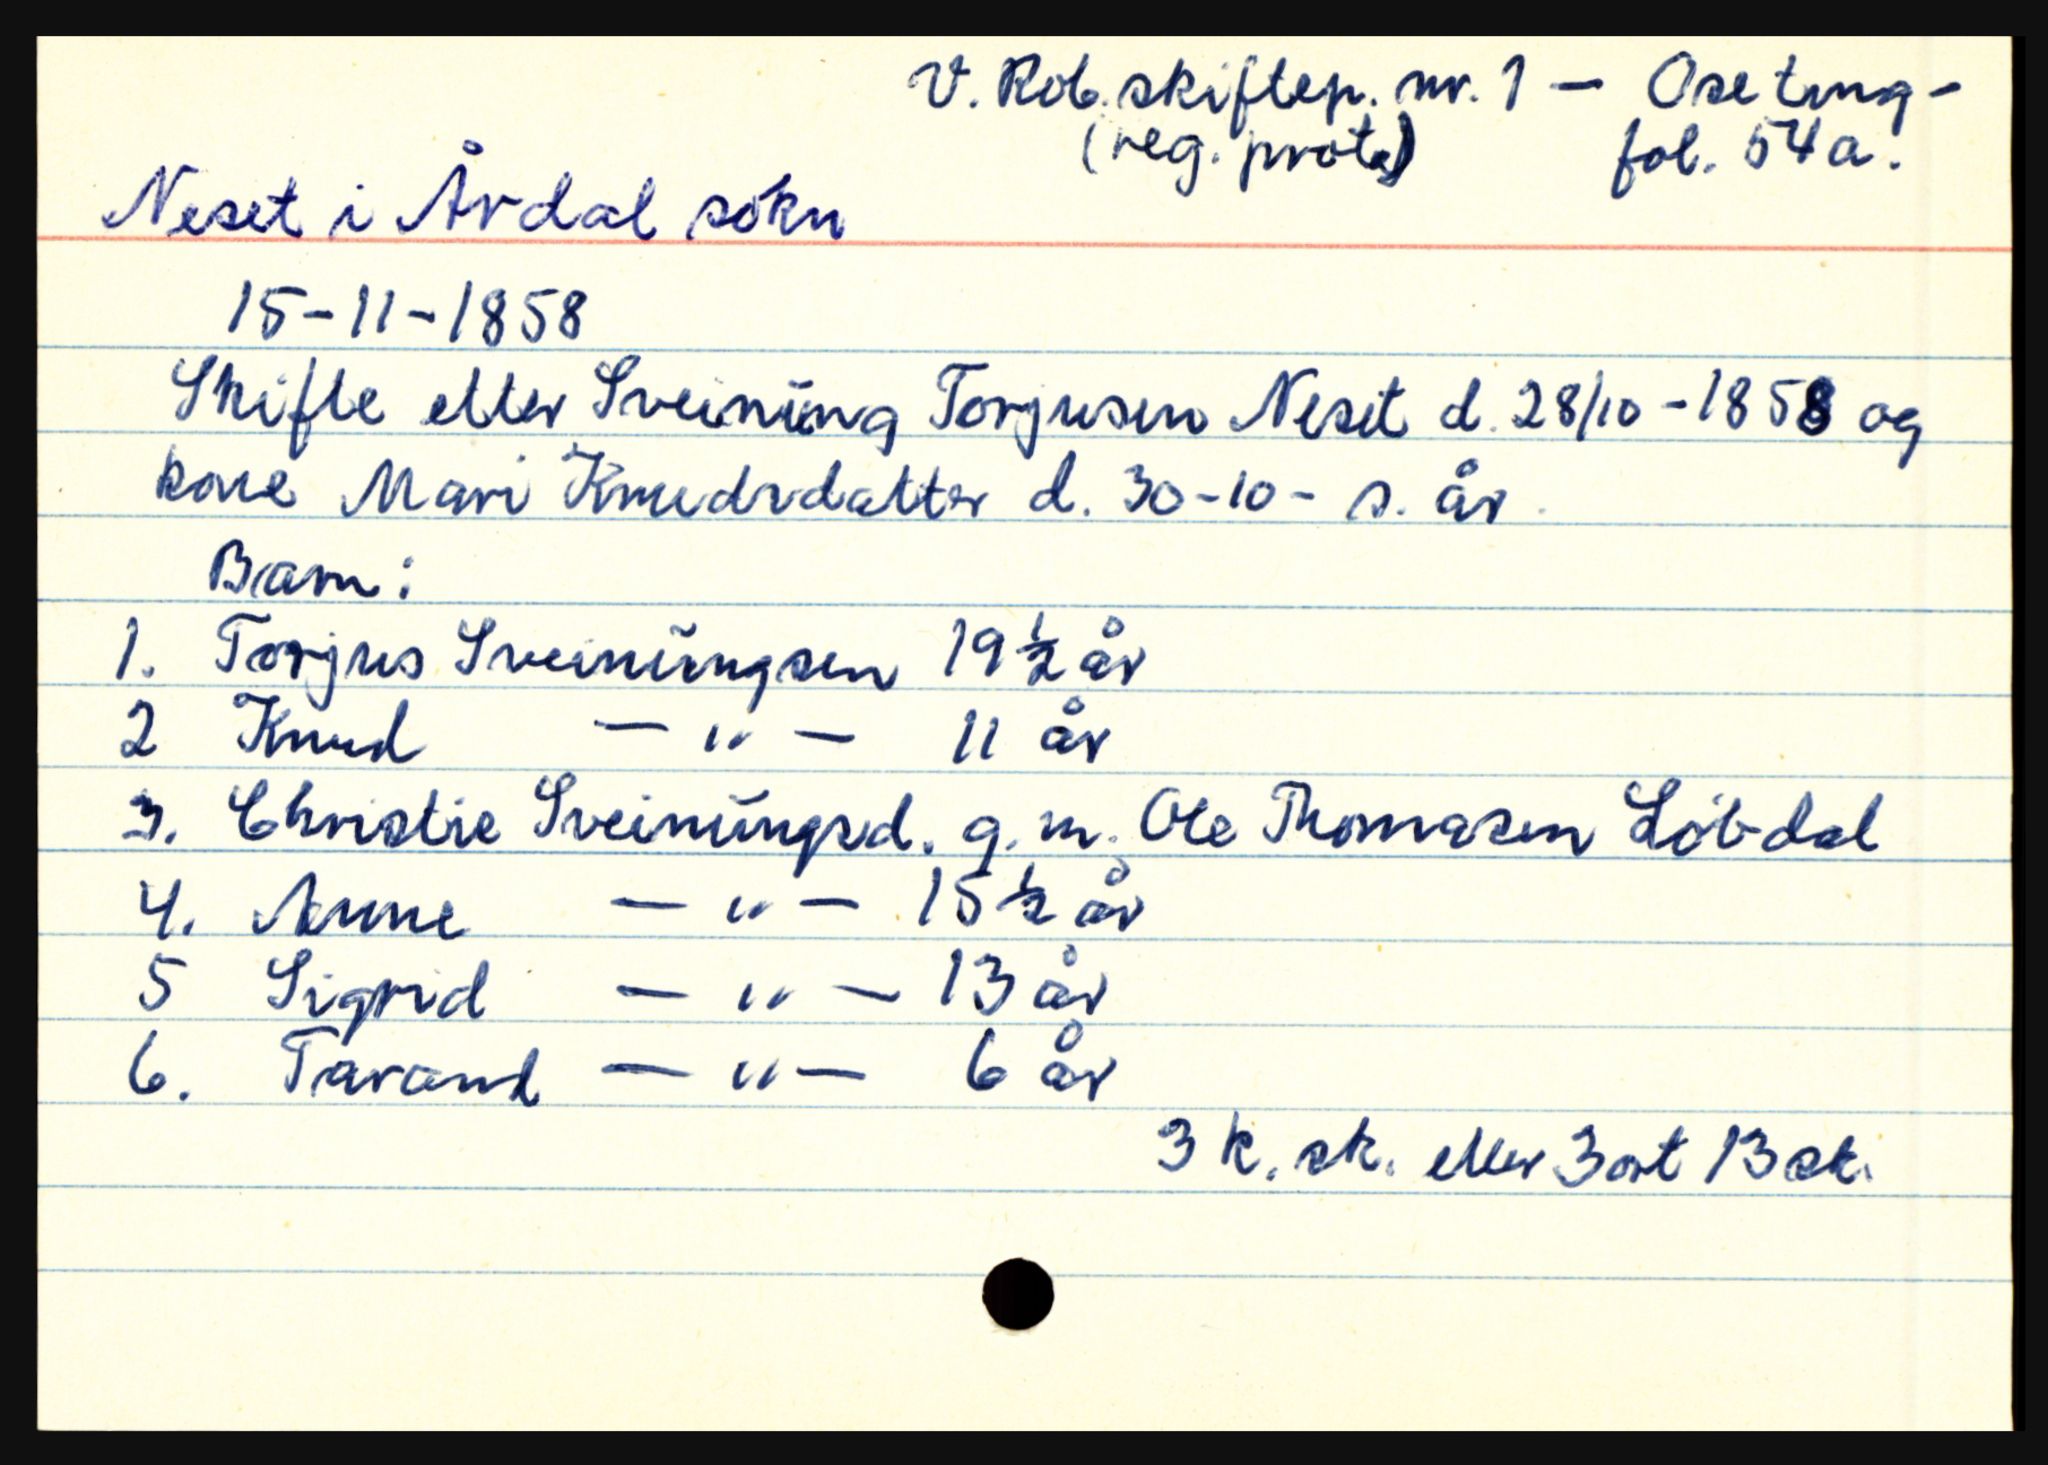 V. Rob. skiftep. nr. 1 — Ose tung-
(reg. prot.) fol. 54a.
Neset i Årdal sókn
15-11-1858
Skifte etter Sveinŭng Torjusen Neset d. 28/10-1858 og
kone Mari Knudsdatter d. 30-10- s. år.
Barn:
1. Torjus Sveinŭngsen 19 ½ år
2 Knud — " — 11 år
3. Christie Sveinŭngsd. g. m. Ole Thomasen Lóbdal
4. Anne — " — 15 ½ år
5 Sigrid — " — 13 år
6. Tarand — " — 6 år
3 k. sk. eller 3 ort 13 sk.